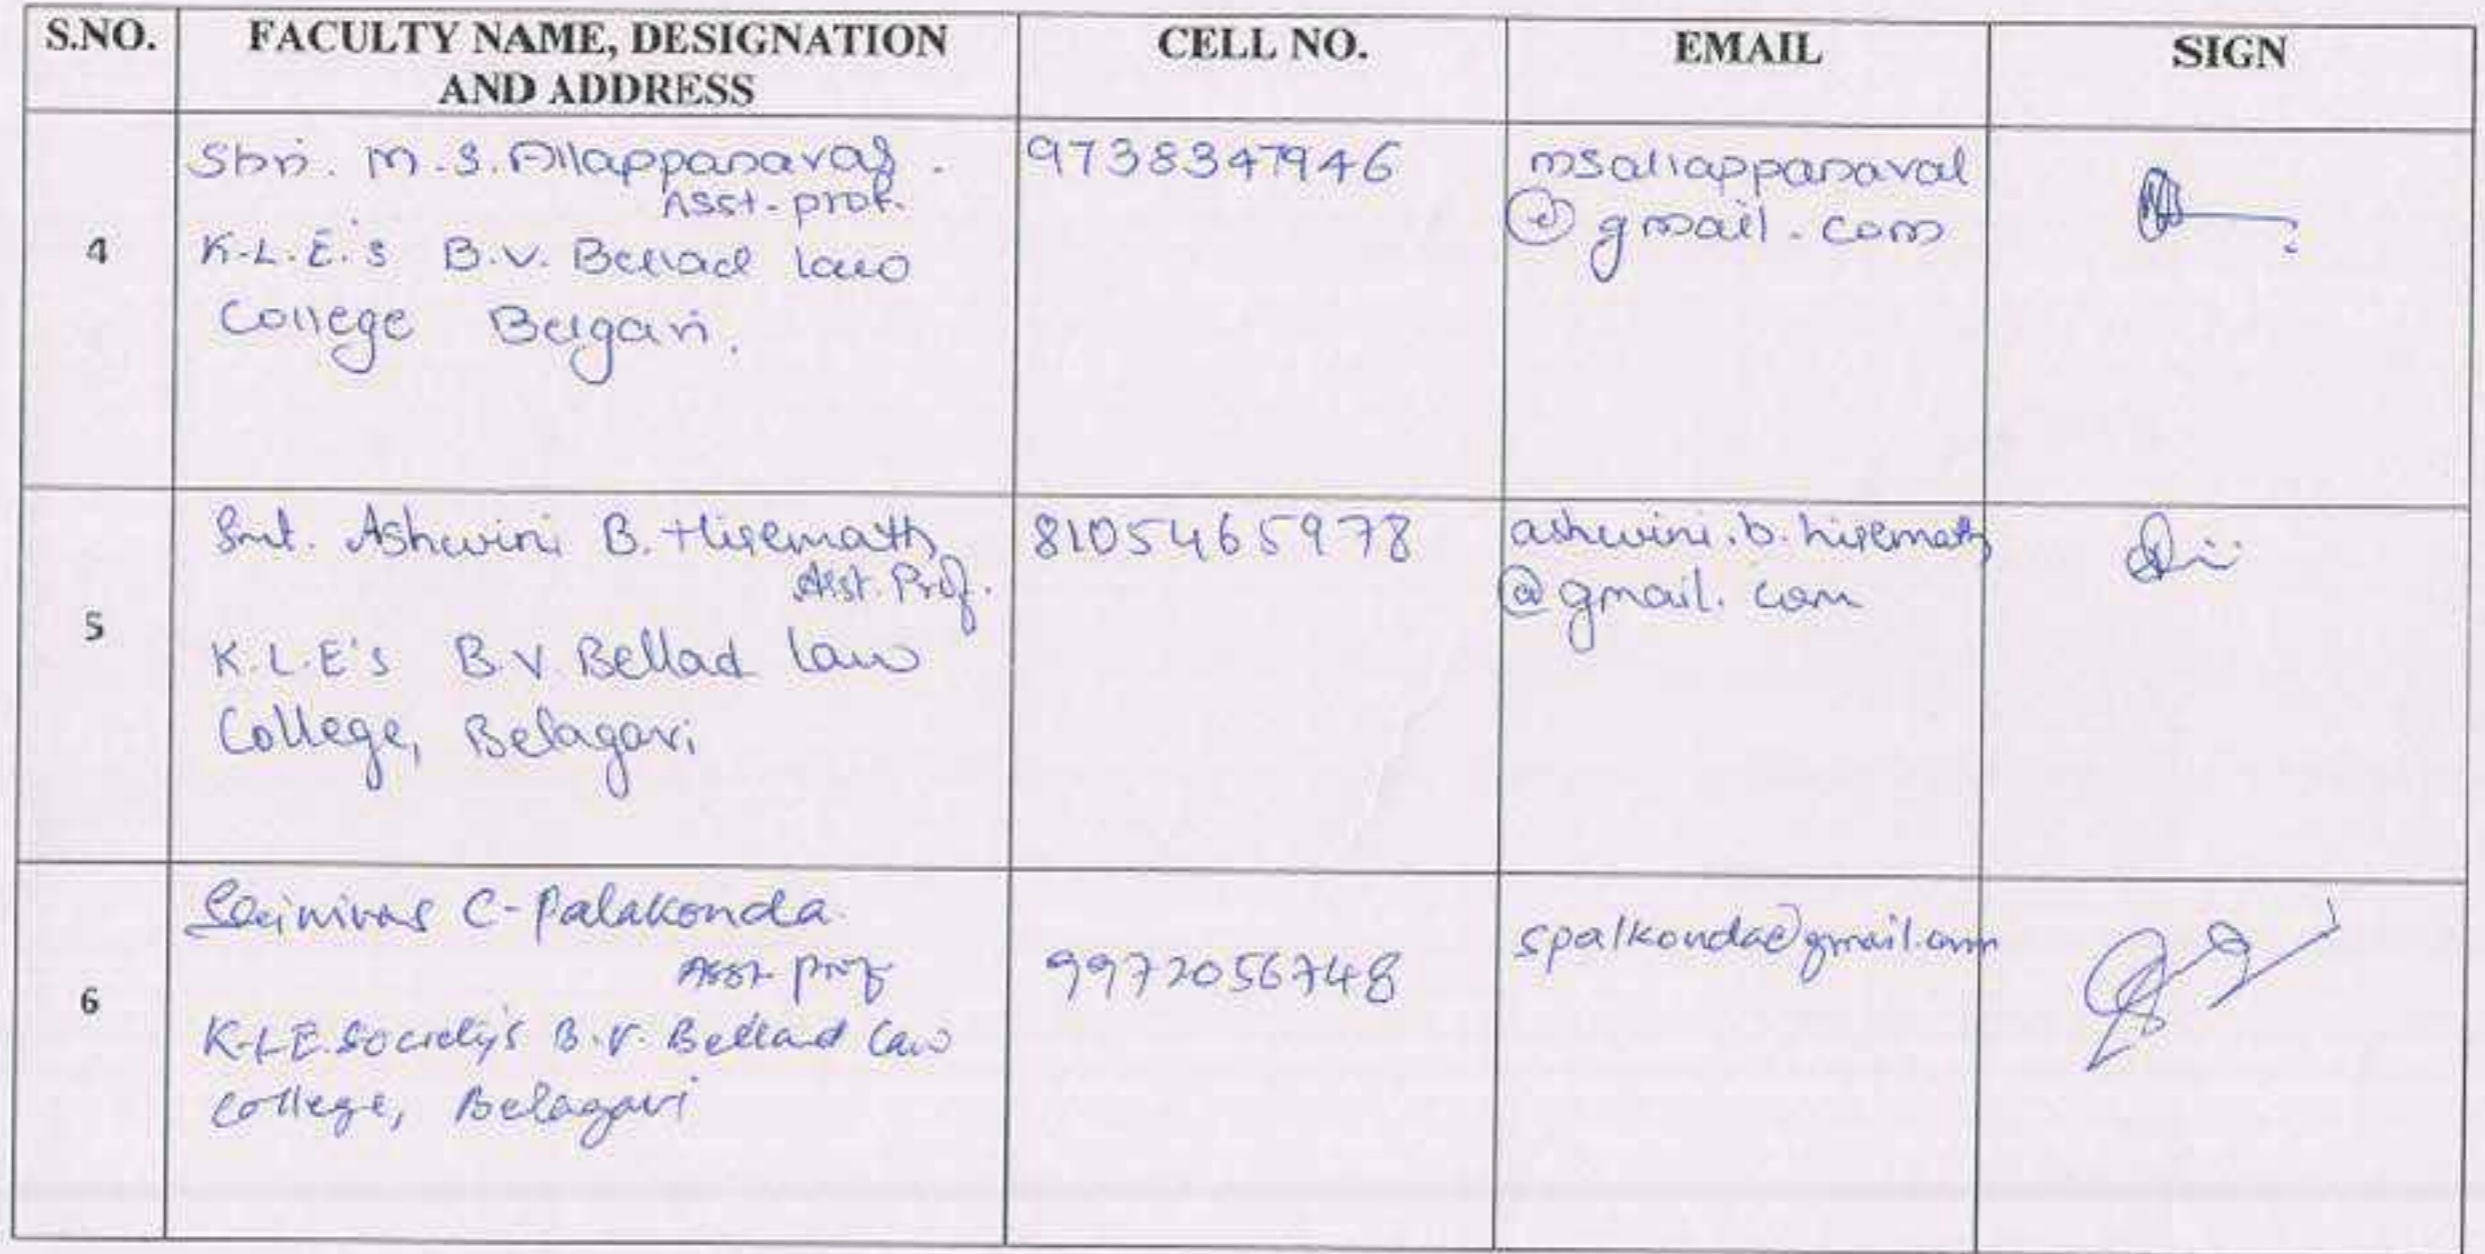 S.NO. FACULTY NAME, DESIGNATION CELL NO. EMAIL SIGN
AND ADDRESS
4
Shri. M.S. Allappanavar.
Asst. prof.
K.L.E.'s B.V. Bellad law
College Belgavi.
9738347946
msallappanaval
@gmail.com
5
Smt. Ashwini B. Hiremath
Asst. Prof.
K.L.E's B.V. Bellad law
College, Belagavi
8105465978
ashwini.b.hiremath
@gmail.com
6
Srinivas C-Palakonda
Asst prof
K.L.E.Society's B.V. Bellad Law
College, Belagavi
9972056748
spalkonda@gmail.com